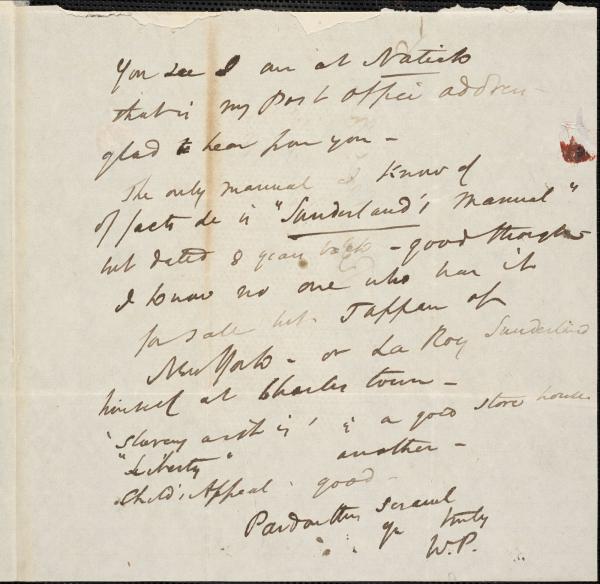 You see I am at Natick
that is my Post Office address -
glad to hear from you -
The only manual I know of
of facts &c is "Sunderland's Manual"
but dated 8 years back - good though
I know no one who has it
for sale but Tappan of
New York - or La Roy Sunderland
himself at Charlestown -
'Slavery as it is' is a good store house
"Liberty" another -
Child's Appeal good -
Pardon this scrawl
Yrs truly
W.P.